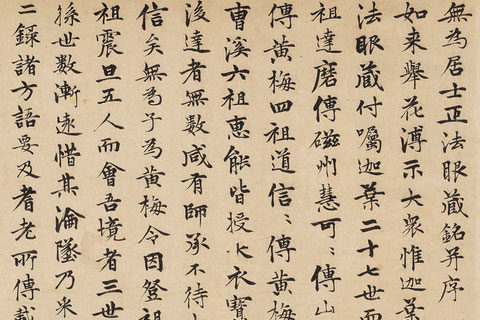 無為居士正法眼蔵銘并序
如来舉花溥示大衆惟迦葉
法眼蔵付囑迦葉二十七世而
祖達磨傳磁州慧可〻傳山
傳黄梅四祖道信〻傳黄梅
曺溪六祖惠能皆授以衣寳
後達者無数咸有師承不待
信矣無為子為黄梅令因登祖
祖震旦五人而會吾境者三世
孫世数漸遠惜其淪墜乃采
二録諸方語要及耆老所傳載